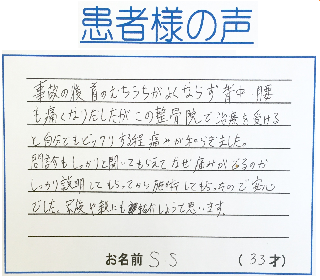 患者様の声
事故の後首のむちうちがよくならず背中、腰
も痛くなりだしたがこの整骨院で治療を受ける
と自分でもビックリする程痛みが和らぎました。
問診もしっかりと聞いてもらえてなぜ痛みが出るのか
しっかり説明してもらってから施術してもらったので安心
でした。家族や親にも紹介しようと思います。
お名前 S S (33才)